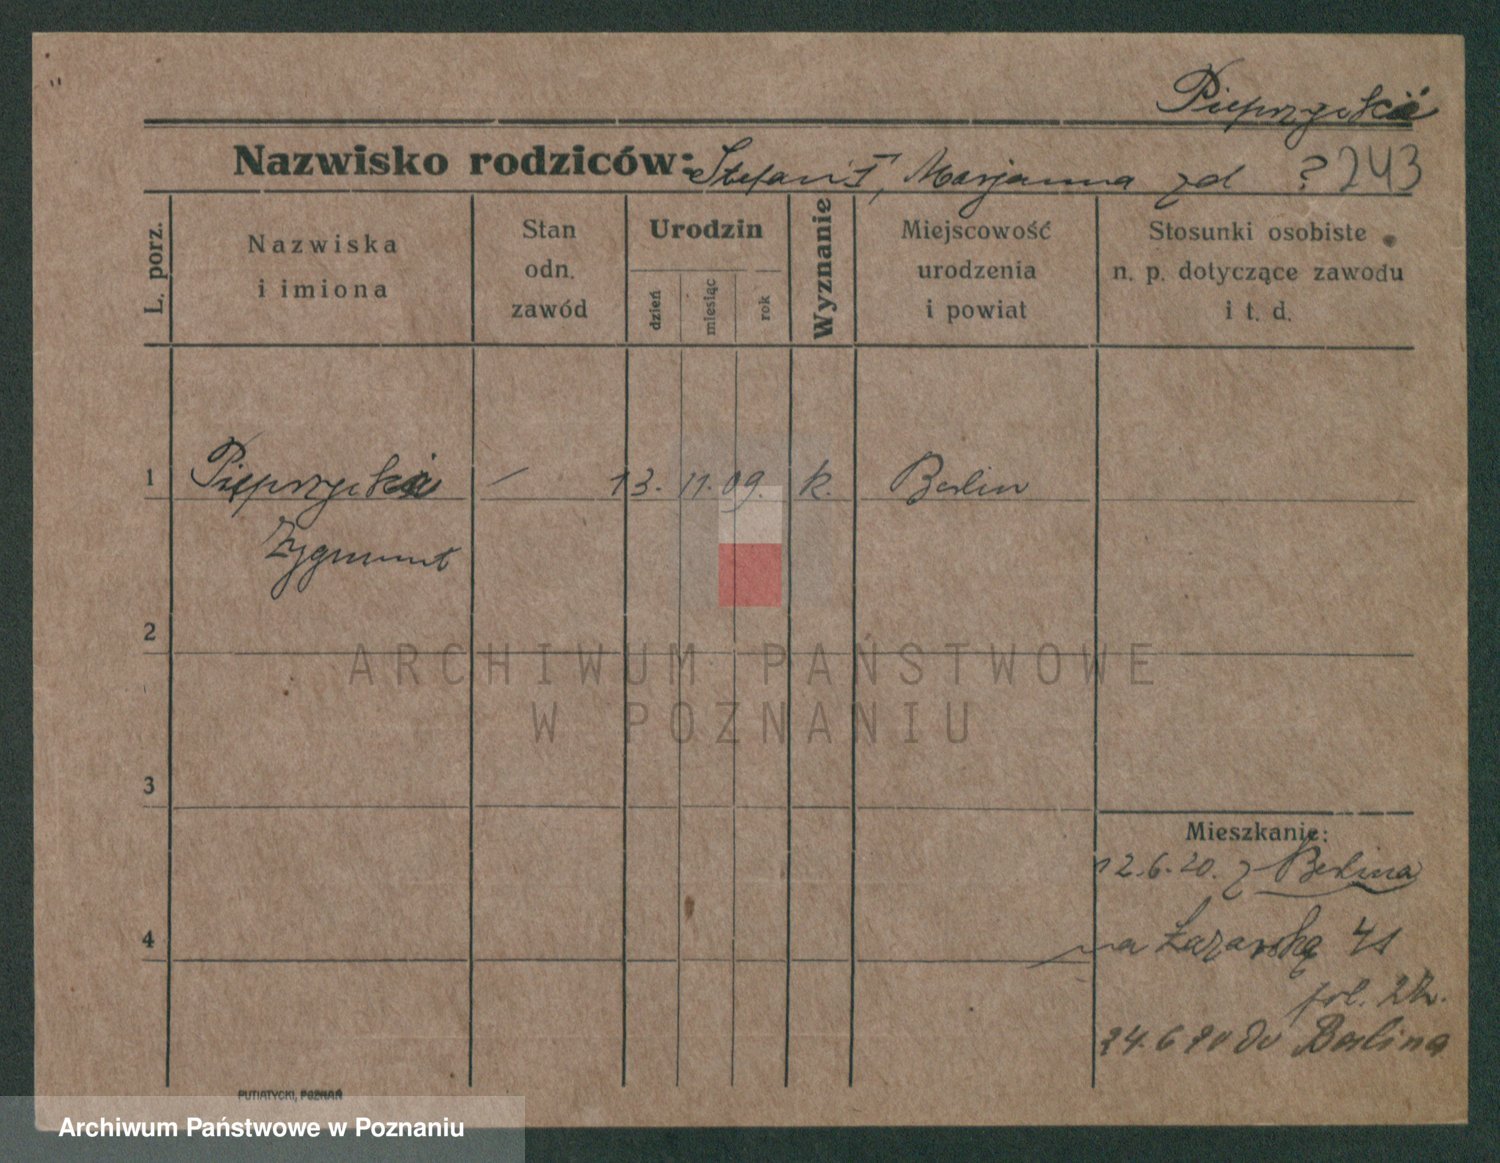 Pieprzycki
Nazwisko rodziców: Stefan I, Marjanna zd ? 243
L. porz.
Nazwiska
i imiona
Stan
odn.
zawód
Urodzin
dzień
miesiąc
rok
Wyznanie
Miejscowość
urodzenia
i powiat
Stosunki osobiste
n. p. dotyczące zawodu
i t. d.
1 Pieprzycki — 13. 11. 09. k. Berlin
Zygmunt
2
ARCHIWUM PAŃSTWOWE
W POZNANIU
3
Mieszkanie:
12.6.20. z Berlina
4 na Łazarską 41
24.6 20 do Berlina
PUTIATYCKI, POZNAŃ
Archiwum Państwowe w Poznaniu